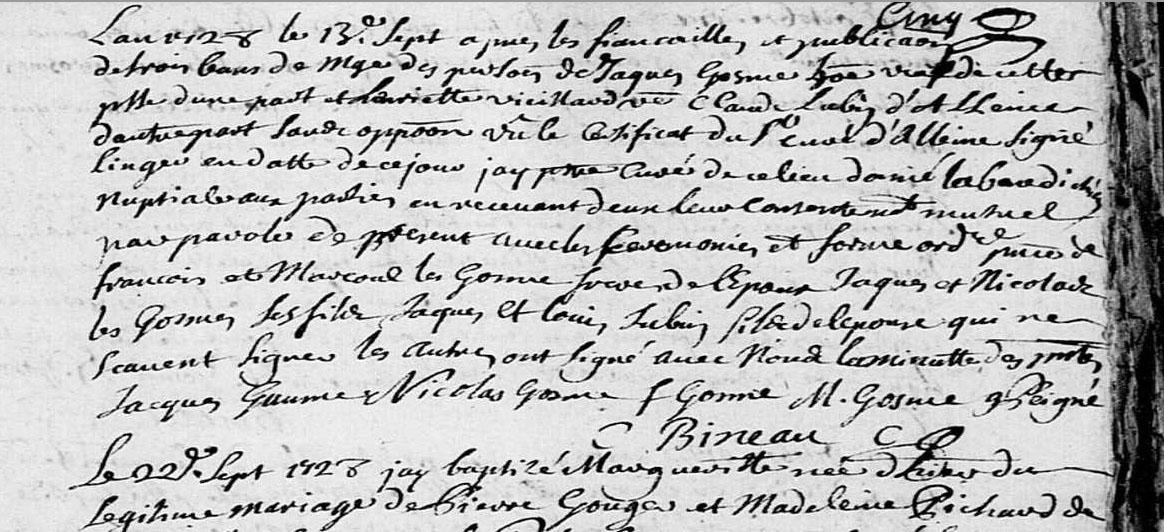 Cinq
Lan 1728 le 13e. Sept apres les fiancailles et publicaon
de trois bans de Mge des psoes de Jaques Gosme veuf de cette
psse dune part et henriette vieillard ve Claude Lubin d'Alleine
dautre part sans opposon vu le Certificat du Sr Curé d'Alleine signé
Linger en datte de ce jour jay ptre Curé de ce lieu donné la benedichon
nuptiale aux parties en recevant deux leur Consentemt mutuel
par parole de present avec les ceremonies et forme ordre pnces de
francois et Marcoul les Gosme freres de lEpoux Jaques et Nicolas
les Gosmes ses fils Jaques Et louis Lubin fils de lepouse qui ne
scavent signer les autres ont signé avec Nous la minutte des pntes
Jacques Gaume Nicolas Gosme f Gosme M. Gosme Peigné
Bineau
Le 22e. Sept 1728 jay baptizé Margueritte née d'hier du
legitime mariage de Pierre Gouger et Madeleine Richard de